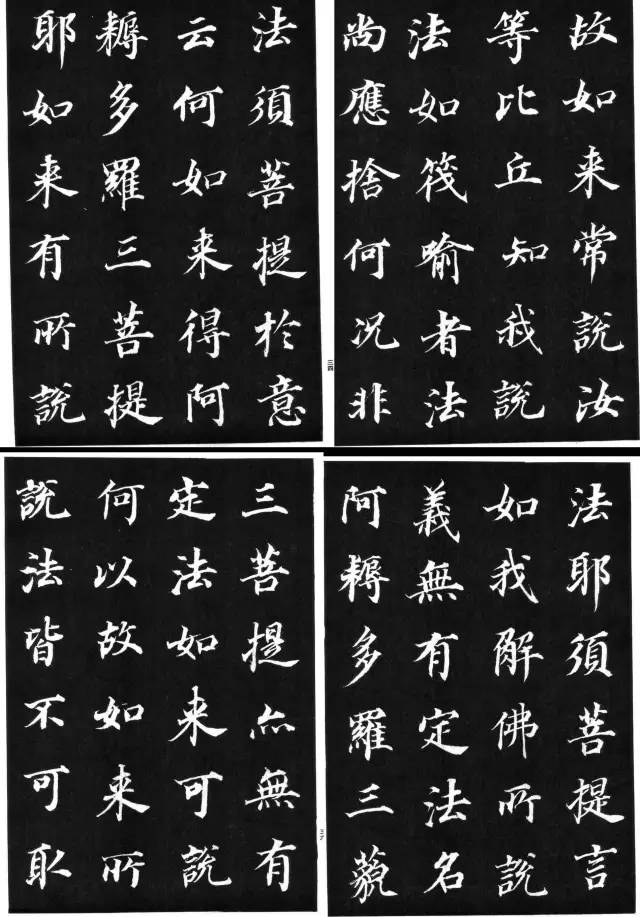 故如来常說汝
等比丘知我說
法如筏喻者法
尚應捨何况非
三四
法須菩提於意
云何如来得阿
耨多羅三菩提
耶如来有所說
法耶須菩提言
如我解佛所說
義無有定法名
阿耨多羅三藐
三六
三菩提亦無有
定法如来可說
何以故如来所
說法皆不可取